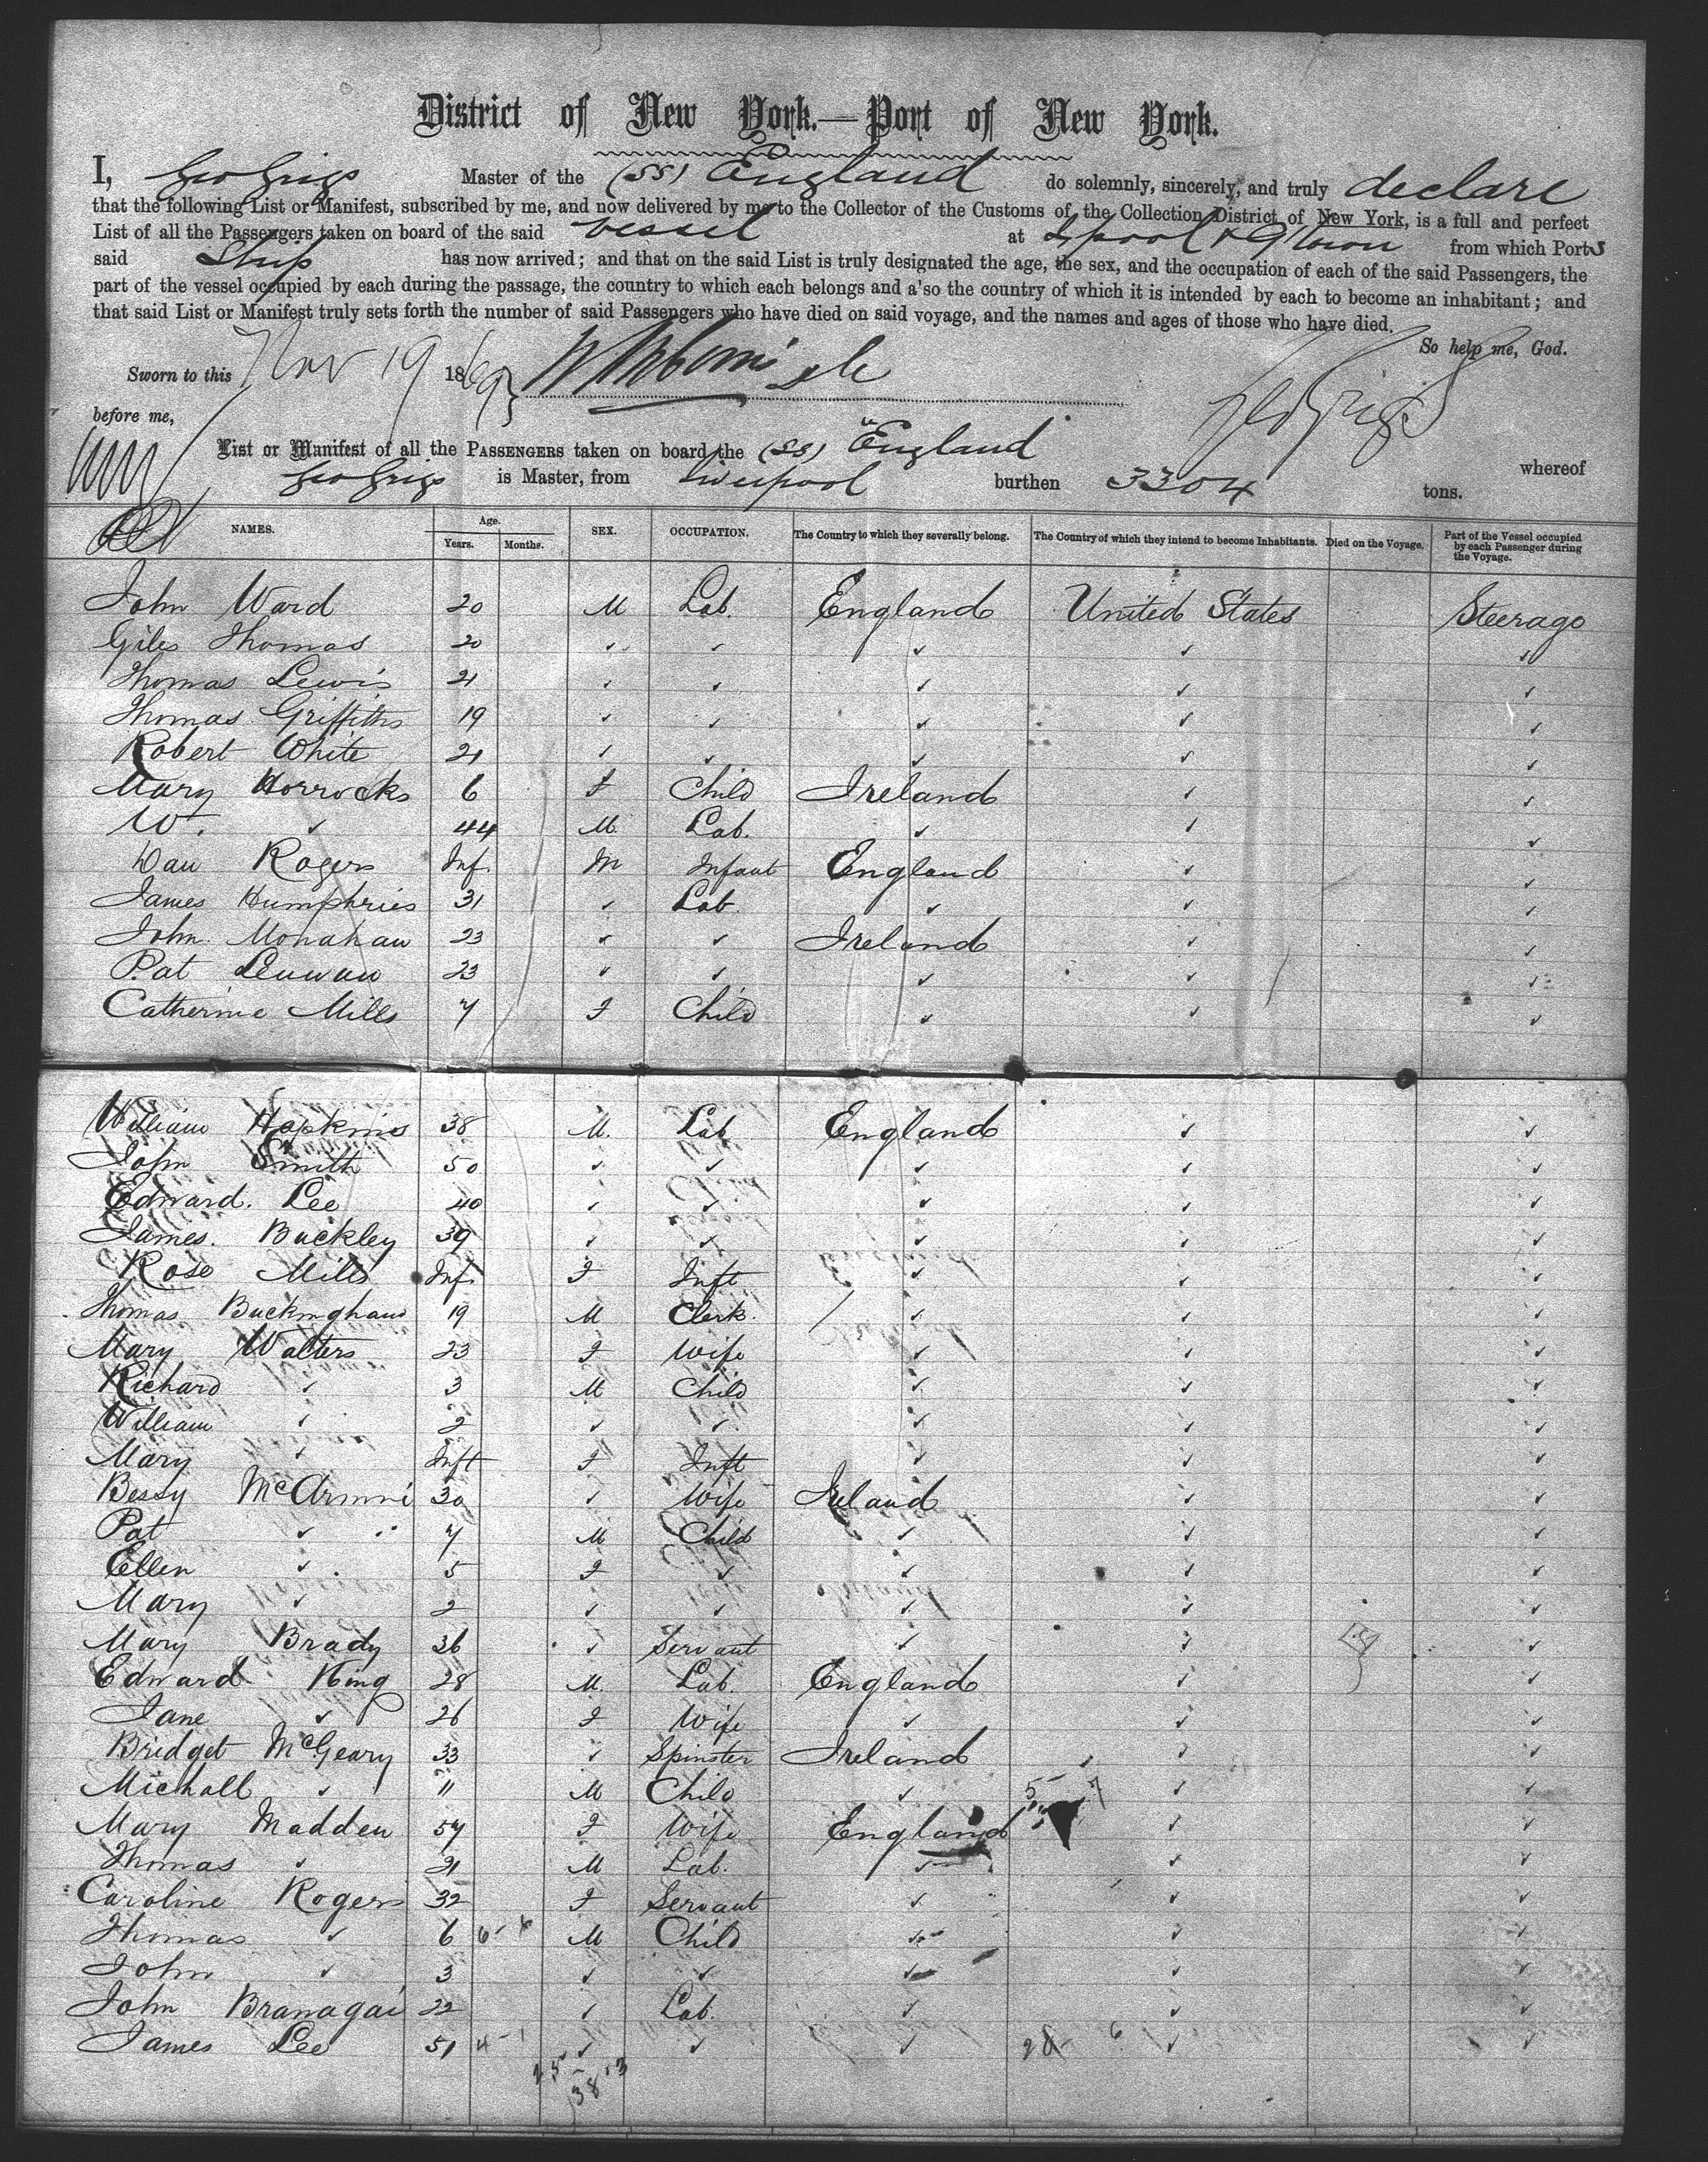 District of New York.—Port of New York.
I, Geo Grigs Master of the (SS) England do solemnly, sincerely, and truly declare
that the following List or Manifest, subscribed by me, and now delivered by me to the Collector of the Customs of the Collection District of New York, is a full and perfect
List of all the Passengers taken on board of the said vessel at Lpool & Qtown from which Ports
said Ship has now arrived; and that on the said List is truly designated the age, the sex, and the occupation of each of the said Passengers, the
part of the vessel occupied by each during the passage, the country to which each belongs and a'so the country of which it is intended by each to become an inhabitant; and
that said List or Manifest truly sets forth the number of said Passengers who have died on said voyage, and the names and ages of those who have died.
So help me, God.
Sworn to this Nov 19 1869 Geo Grigs
before me,
List or Manifest of all the PASSENGERS taken on board the (SS) "England whereof
Geo Grigs is Master, from Liverpool burthen 3304 tons.
NAMES. Age. Years. Months. SEX. OCCUPATION. The Country to which they severally belong. The Country of which they intend to become Inhabitants. Died on the Voyage. Part of the Vessel occupied by each Passenger during the Voyage.
John Ward 20 M Lab. England United States Steerage
Giles Thomas 20 ✓ ✓ ✓ ✓ ✓
Thomas Lewis 21 ✓ ✓ ✓ ✓ ✓
Thomas Griffiths 19 ✓ ✓ ✓ ✓ ✓
Robert White 21 ✓ ✓ ✓ ✓ ✓
Mary Horrocks 6 F Child Ireland ✓ ✓
W. ✓ 44 M Lab. ✓ ✓ ✓
Dan Rogers Inf. M Infant England ✓ ✓
James Humphries 31 ✓ Lab. ✓ ✓ ✓
John Monahan 23 ✓ ✓ Ireland ✓ ✓
Pat 23 ✓ ✓ ✓ ✓ ✓
Catherine Mills 7 F Child ✓ ✓ ✓
William Hopkins 38 M. Lab England ✓ ✓
John Smith 50 ✓ ✓ ✓ ✓ ✓
Edward. Lee 40 ✓ ✓ ✓ ✓ ✓
James. Buckley 39 ✓ ✓ ✓ ✓ ✓
Rose Mills Inf. F Inft ✓ ✓ ✓
Thomas Buckingham 19 M Clerk. ✓ ✓ ✓
Mary Walters 23 F Wife ✓ ✓ ✓
Richard ✓ 3 M Child ✓ ✓ ✓
William ✓ 2 ✓ ✓ ✓ ✓ ✓
Mary ✓ Inft F Inft ✓ ✓ ✓
Bessy McArmni 30 ✓ Wife Ireland ✓ ✓
Pat ✓ 7 M Child ✓ ✓ ✓
Ellen ✓ 5 F ✓ ✓ ✓ ✓
Mary ✓ 2 ✓ ✓ ✓ ✓ ✓
Mary Brady 36 ✓ Servant ✓ ✓ ✓
Edward King 28 M. Lab. England ✓ ✓
Jane ✓ 26 F Wife ✓ ✓ ✓
Bridget McGeary 33 ✓ Spinster Ireland ✓ ✓
Michall ✓ 11 M Child ✓ ✓ ✓
Mary Madden 57 F Wife England ✓ ✓
Thomas ✓ 21 M Lab. ✓ ✓ ✓
Caroline Rogers 32 F Servant ✓ ✓ ✓
Thomas ✓ 6 M Child ✓ ✓ ✓
John ✓ 3 ✓ ✓ ✓ ✓ ✓
John Branagai 22 ✓ Lab. ✓ ✓ ✓
James Lee 51 ✓ ✓ ✓ ✓ ✓